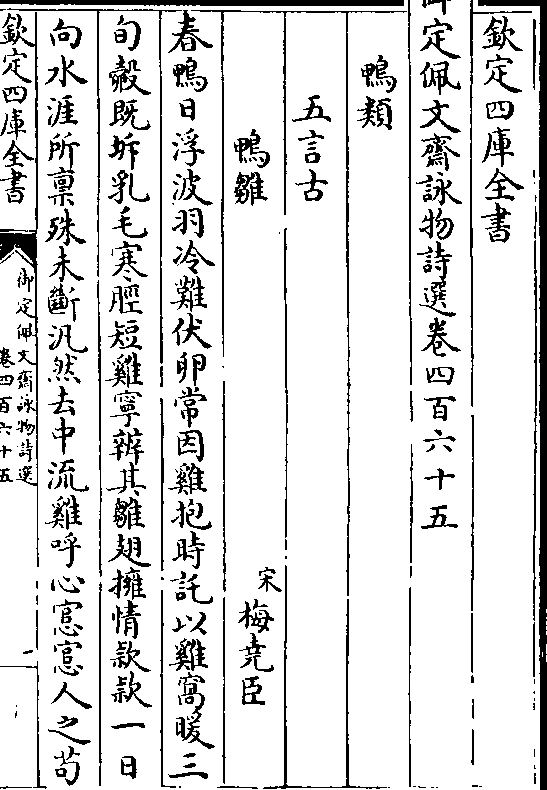 欽定四庫全書
御定佩文齋詠物詩選卷四百六十五
鴨類
五言古
鴨雛　宋梅堯臣
春鴨日浮波羽冷難伏卵常因雞抱時託以雞窩暖三
旬鷇既坼乳毛寒脛短雞寧辨其雛翅擁情款款一日
向水涯所稟殊未斷汎然去中流雞呼心悹悹人之苟
欽定四庫全書
御定佩文齋詠物詩選
卷四百六十五
一